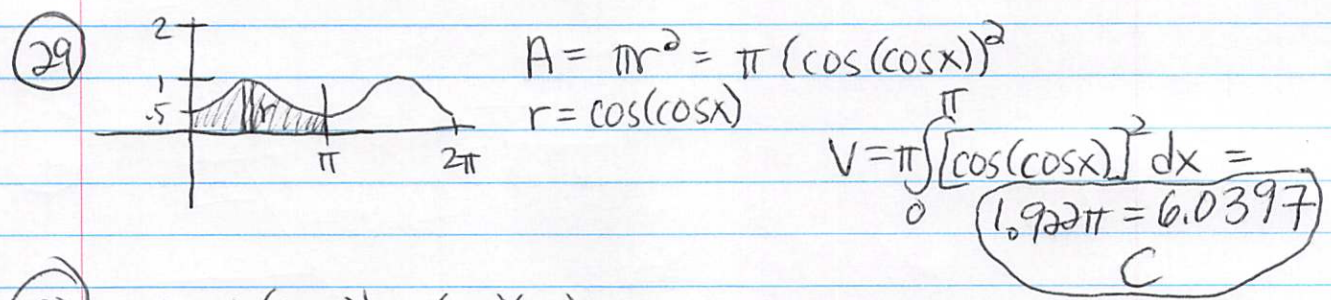 29
2
1
.5
r
π
2π
A = πr² = π (cos(cosx))²
r = cos(cosx)
V = π∫₀^π [cos(cosx)]² dx =
1.922π = 6.0397
C